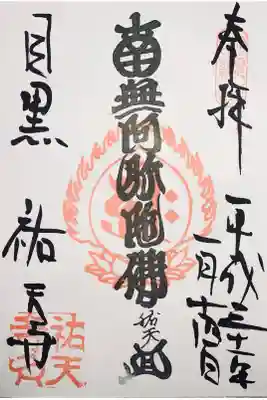 奉拝
平成三十一年
一月十四日
南無阿弥陀佛
祐天
目黒
祐天寺